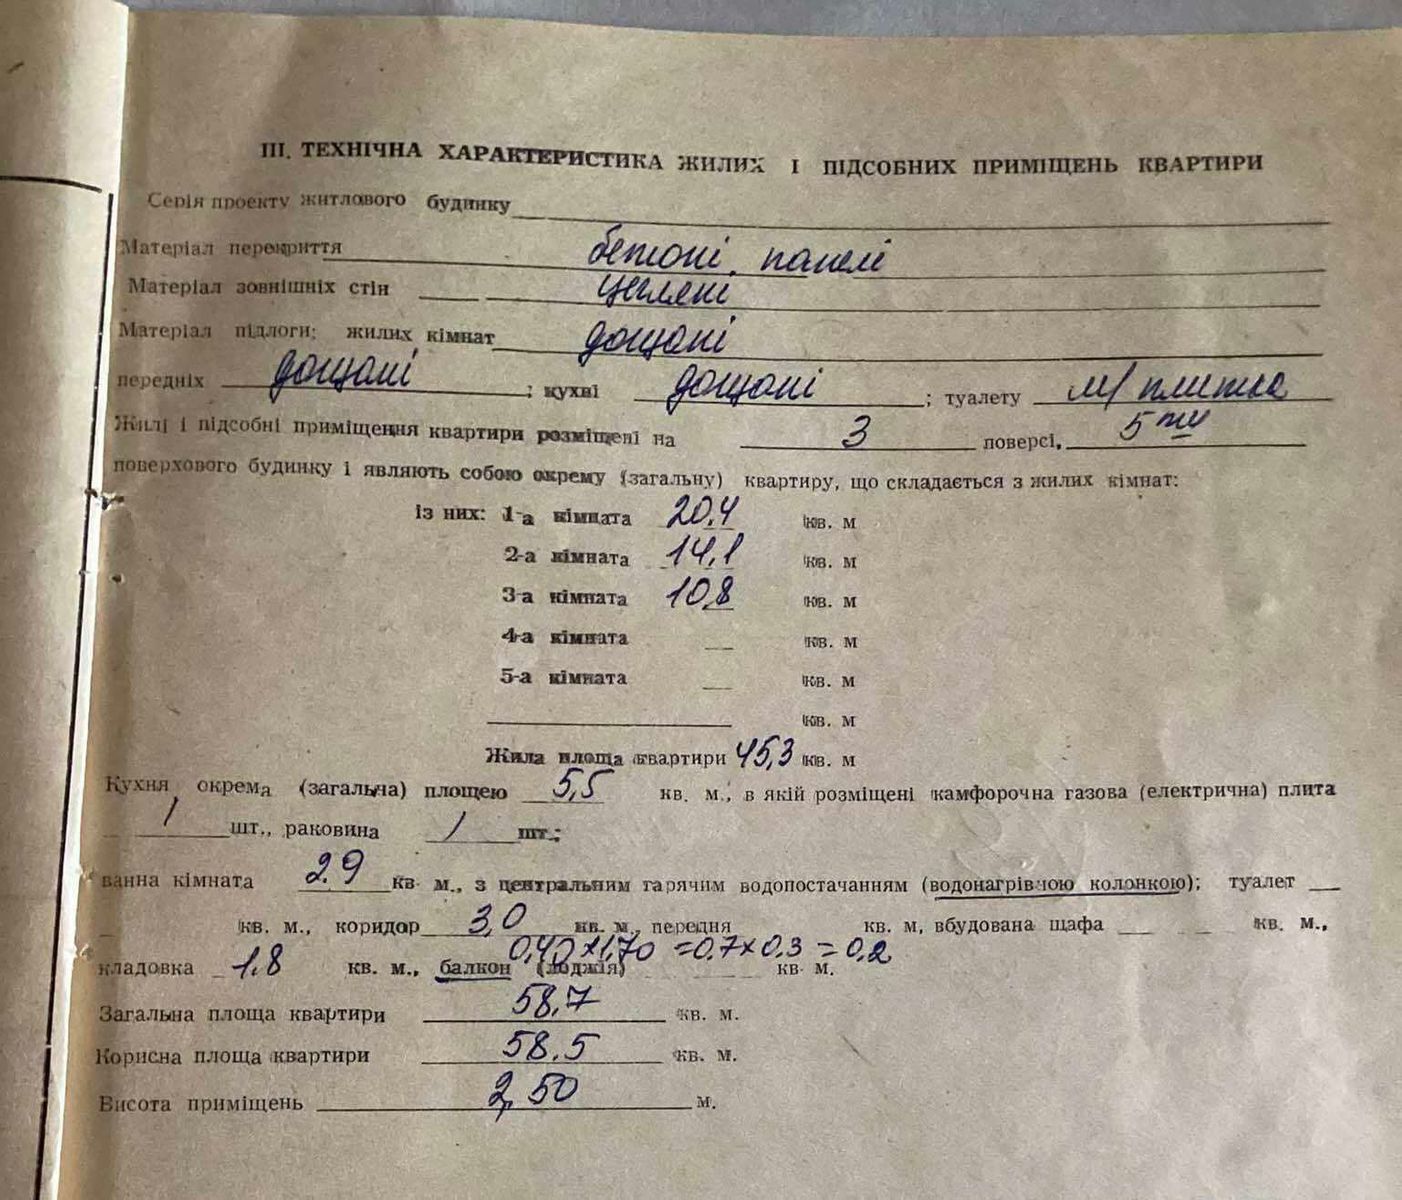 III. ТЕХНІЧНА ХАРАКТЕРИСТИКА ЖИЛИХ І ПІДСОБНИХ ПРИМІЩЕНЬ КВАРТИРИ
Серія проекту житлового будинку
Матеріал перекриття бетоні. панелі
Матеріал зовнішніх стін цегляні
Матеріал підлоги: жилих кімнат дощані
передніх дощані ; кухні дощані ; туалету м/плитка
Жилі і підсобні приміщення квартири розміщені на 3 поверсі, 5ти
поверхового будинку і являють собою окрему (загальну) квартиру, що складається з жилих кімнат:
із них: 1-а кімната 20,4 кв. м
2-а кімната 14,1 кв. м
3-а кімната 10,8 кв. м
4-а кімната — кв. м
5-а кімната — кв. м
кв. м
Жила площа квартири 45,3 кв. м
Кухня окрема (загальна) площею 5,5 кв. м., в якій розміщені камфорочна газова (електрична) плита
1 шт., раковина 1 шт.;
ванна кімната 2.9 кв. м., з центральним гарячим водопостачанням (водонагрівною колонкою); туалет
кв. м., коридор 3,0 кв. м., передня кв. м, вбудована шафа кв. м.,
кладовка 1.8 кв. м., балкон (лоджія) 0,40×1,70=0.7×0.3=0.2 кв. м.
Загальна площа квартири 58,7 кв. м.
Корисна площа квартири 58.5 кв. м.
Висота приміщень 2,50 м.